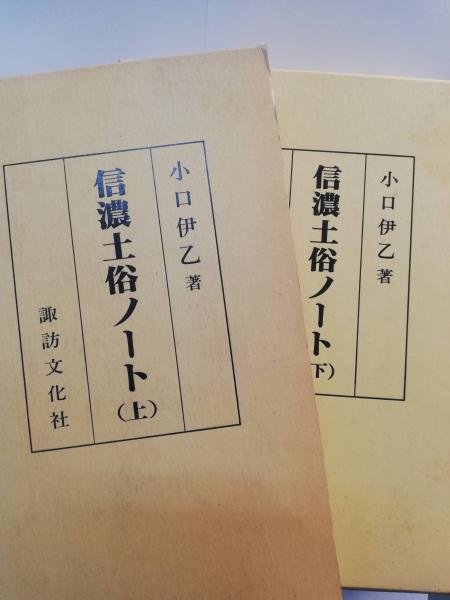 小口伊乙著
信濃土俗ノート(上)
諏訪文化社
小口伊乙著
信濃土俗ノート(下)